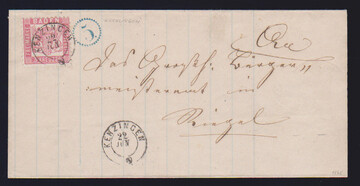 BADEN
KENZINGEN
29
JUN
5.
An
das Großh. Bürger„
meisteramt in
Riegel
KENZINGEN
29
JUN